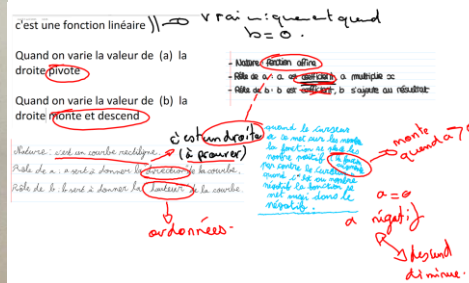 c'est une fonction linéaire
vrai uniquement quand
b = 0.
Quand on varie la valeur de (a) la
droite pivote
Quand on varie la valeur de (b) la
droite monte et descend
- Nature: fonction affine
- Rôle de a: a est coefficient, a multiplie x
- Rôle de b: b est coefficient, b s'ajoute au résultat
c'est un droite
(à prouver)
Nature: c'est un courbe rectiligne.
Rôle de a: a sert à donner la direction de la courbe.
Rôle de b: b sert à donner la hauteur de la courbe.
ordonnées.
quand le curseur
a se met sur les
nombre positif la fonction
monte
par contre le curseur
quand c'est un nombre
négatif la fonction se
met aussi dans le
négatif.
monte
quand a > 0
a = 0
a négatif
descend
diminue.